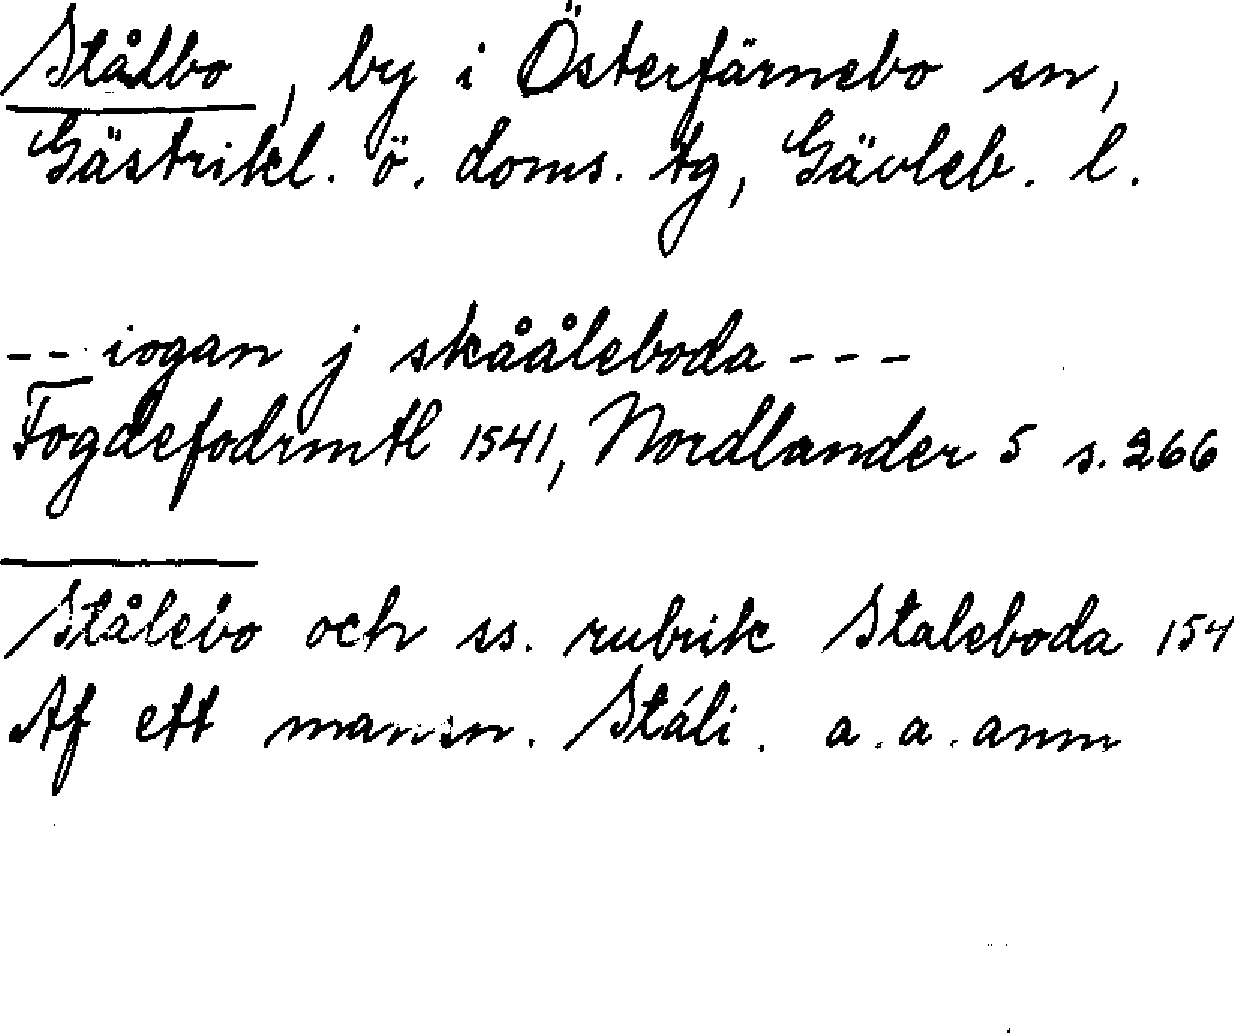 Stålbo, by i Österfärnebo sn,
Gästrikl. ö. doms. tg, Gävleb. l.
-- iogan j skååleboda ---
Fogdefodrmtl 1541, Nordlander 5 s. 266
Stålebo och ss. rubrik Staleboda 154
Af ett mansn. Stáli. a.a. anm